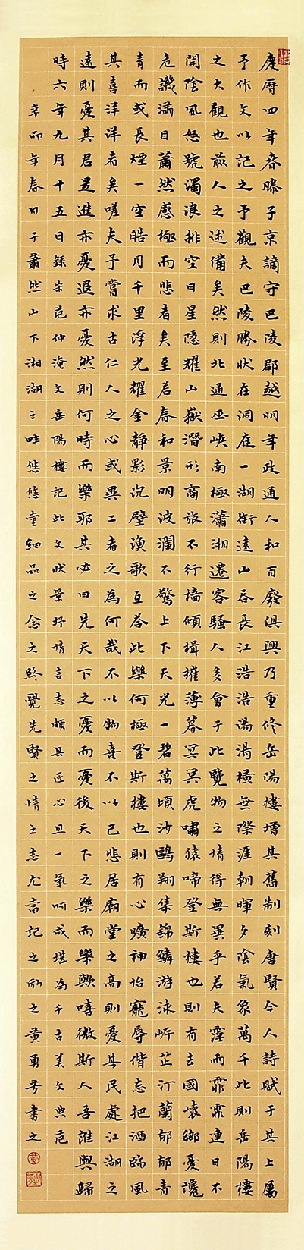 慶曆四年春滕子京謫守巴陵郡越明年政通人和百廢俱興乃重修岳陽樓增其舊制刻唐賢今人詩賦于其上屬
予作文以記之予觀夫巴陵勝狀在洞庭一湖銜遠山吞長江浩浩湯湯橫無際涯朝暉夕陰氣象萬千此則岳陽樓
之大觀也前人之述備矣然則北通巫峽南極瀟湘遷客騷人多會于此覽物之情得無異乎若夫霪雨霏霏連日不
開陰風怒號濁浪排空日星隱耀山嶽潛形商旅不行檣傾楫摧薄暮冥冥虎嘯猿啼登斯樓也則有去國懷鄉憂讒
畏譏滿目蕭然感極而悲者矣至若春和景明波瀾不驚上下天光一碧萬頃沙鷗翔集錦鱗游泳岸芷汀蘭郁郁青
青而或長煙一空皓月千里浮光耀金靜影沉璧漁歌互答此樂何極登斯樓也則有心曠神怡寵辱偕忘把酒臨風
其喜洋洋者矣嗟夫予嘗求古仁人之心或異二者之為何哉不以物喜不以己悲居廟堂之高則憂其民處江湖之
遠則憂其君是進亦憂退亦憂然則何時而樂耶其必曰先天下之憂而憂後天下之樂而樂歟噫微斯人吾誰與歸
時六年九月十五日錄宋范仲淹文岳陽樓記此文狀景抒情言志頗具匠心且一氣呵成堪為千古美文與范
辛卯年春日于蕭然山下湘湖之畔品之念之終覺先賢之情之志尤高記之黃勇書之